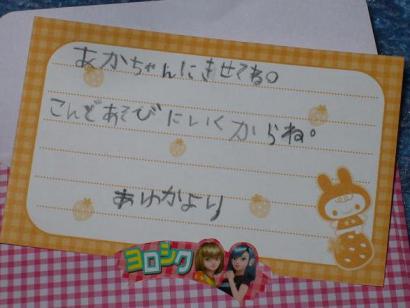 あかちゃんにきせてね。
こんどあそびにいくからね。
あゆかより
ヨロシク